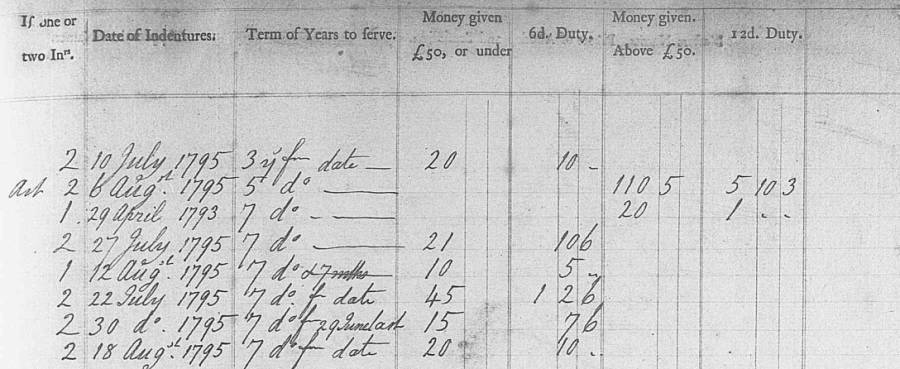 If one or two Inrs. Date of Indentures. Term of Years to serve. Money given £50, or under 6d. Duty. Money given. Above £50. 12d. Duty.
2 10 July 1795 3 yrs fm date — 20 10 -
Art 2 6 Augst. 1795 5 do — 110 5 5 10 3
1 29 April 1793 7 do - — 20 1 - -
2 27 July 1795 7 do — 21 10 6
1 12 Augst. 1795 7 do & 7 mths 10 5 -
2 22 July 1795 7 do. fm date 45 1 2 6
2 30 do. 1795 7 do fm 29 June last 15 7 6
2 18 Augst. 1795 7 do fm date 20 10 -